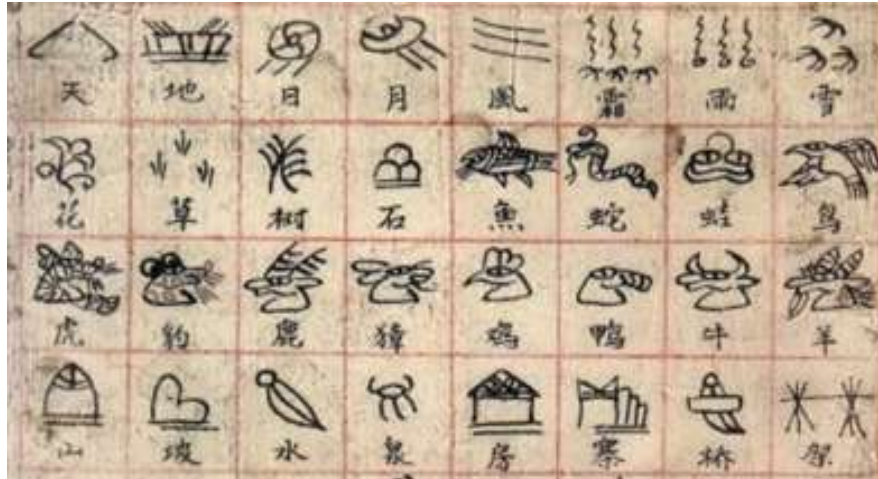 天 地 日 月 風 霜 雨 雪
花 草 树 石 魚 蛇 蛙 鸟
虎 豹 鹿 獐 鸡 鸭 牛 羊
山 坡 水 泉 房 寨 桥 架